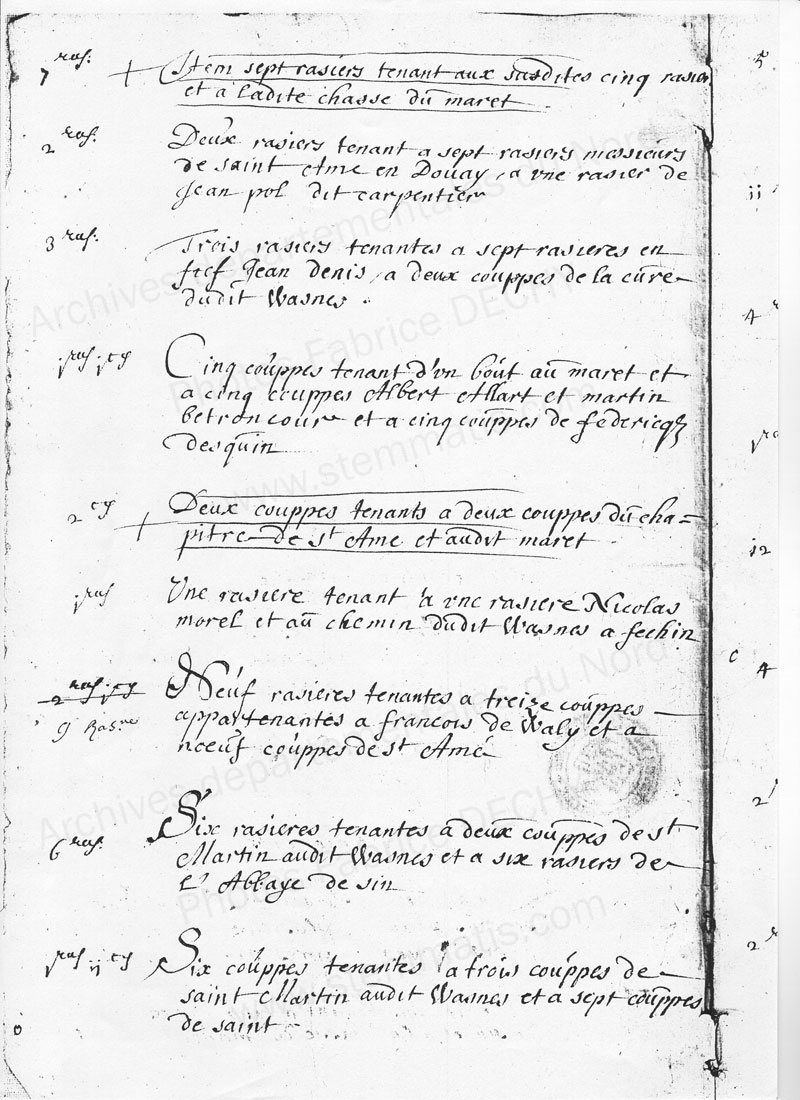 7 ras: + Item sept rasiers tenant aux susdites cinq rasier
et a ladite chasse du maret
2 ras: Deux rasiers tenant a sept rasiers messieurs
de saint Ame en Douay, a vne rasier de
Jean pol dit carpentier
3 ras: Trois rasiers tenantes a sept rasieres en
fief Jean denis, a deux couppes de la cure
dudit Wasnes .
j ras j cp Cinq couppes tenant d'vn bout au maret et
a cinq couppes Albert Allart et martin
betrancourt et a cinq couppes de federicq
desquin
2 cp + Deux couppes tenants a deux couppes du cha=
pitre de st Ame et audit maret
j ras Une rasiere tenant a vne rasiere Nicolas
morel et au chemin dudit Wasnes a fechin
2 ras j cp
9 Rasre Neuf rasieres tenantes a treize couppes
appartenantes a francois de Waly et a
nœuf couppes de st Amé
6 ras: Six rasieres tenantes a deux couppes de st
Martin audit Wasnes et a six rasiers de
L'Abbaye de sin
j ras ij cp Six couppes tenantes a trois couppes de
saint Martin audit Wasnes et a sept couppes
de saint
5
ii
4
12
c 4
2
2
Archives départementales du Nord
Photos Fabrice DECH
www.stemmatis.com
Archives départementales du Nord
Photos Fabrice DECH
www.stemmatis.com